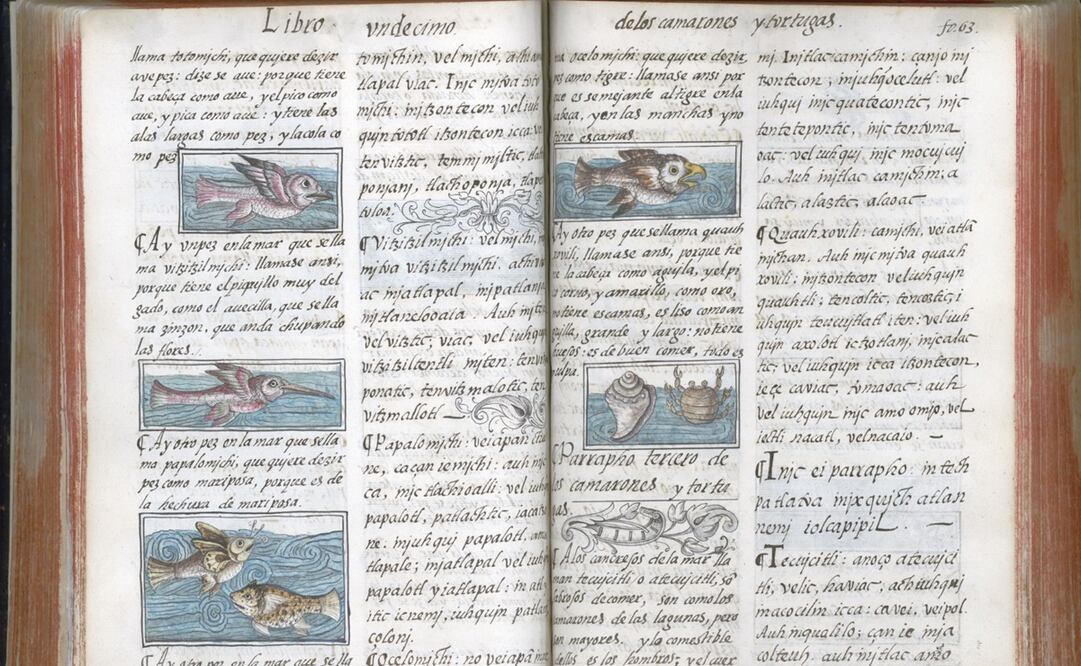 Libro vndecimo.
llama totomichi, que quiere dezir
aue pez: dize se aue: porque tiene
la cabeça como aue, y el pico como
aue, y pica como aue: y tiene las
alas largas como pez, y la cola co
mo pez
¶Ay vn pez en la mar que se lla
ma vitzitzilmichi: llamase ansi,
porque tiene el piquillo muy del
gado, como el auecilla, que se lla
ma zinzon, que anda chupando
las flores.
¶Ay otro pez en la mar que se lla
ma papalomichi, que quiere dezir
pez como mariposa, porque es de
la hechura de mariposa.
¶Ay otro pez en la mar que se lla
tomjchin, vel mjchi,
tlapal viac. Injc mjtva toto
mjchi: injtzontecon vel iuh
quin tototl itzontecon icca
tenvitztic, temmjmjltic,
ponjanj, tlachoponja,
tuloa.
¶Vitzitzilmichi: vel mjchi,
mjtva vitzitzil mjchi.
ac injatlapal, injpatlanja
injtlanelooaia. Auh injten
vel vitztic, viac, vel iuhquj
vitzitziltentli injten:
ponatic, tenvitzmalotic,
vitzmallotl —
¶Papalomichi:
ne, cacan ie mjchi: auh
ca, injc tlachioalli: vel iuh
papalotl, patlachtic,
ne: injuhqui papalotl.
tlapale; injatlapal vel iuh
papalotl yiatlapal:
itic ienemj, iuhqujn
coloni.
¶Ocelomichi:
de los camarones y tortugas. fo. 63.
ma ocelomichi: que quiere dezir
pez como tigre: llamase ansi por
que es semejante al tigre en la
cabeça, y en las manchas y no
tiene escamas.
Ay otro pez que se llama quauh
xovili, llamase ansi, porque tie
ne la cabeça como aguila, y el pi
co corvo, y amarillo, como oro,
no tiene escamas, es liso como an
guilla, grande y largo: no tiene
huesos: es de buen comer, todo es
pulpa.
¶Parrapho tercero de
los camarones y tortu
gas.
¶A los cangrejos de la mar lla
man tecujcitli o atecujcitli, so
sabrosos de comer, son como los
camarones de las lagunas, pero
son mayores, y lo comestible
dellos es los hombros; y el cuer
mj. Injtlac camjchin: can jo mj
tzontecon, injuhq ocelutl: vel
iuhquj injc quatecontic, injc
tentetepontic, injc tentoma
oac: vel iuhquj injc mocujcuj
lo. Auh injtlac camjchin, a
laltic, alaztic, alaoac.
¶Quauhxovili: camjchi, vei atla
mjchan. Auh injc mjtva quauh
xovili; injtzontecon vel iuhqujn
quauhtli; tencoltic, tencoztic, i
uhqujn teocujtlatl iten: vel iuh
qujn axolotl ic tzotlanj, injc alac
tic; vel iuhqujn icca itzontecon,
icçe caviac. Amaoac: auh
vel iuhqujn injc amo omjo, vel
icçtli nacatl, vel nacaio. —
¶Injc ei parrapho: in tech
patlatva injxquich atlan
nemj iolcapipil. —
¶Tecujcitli: anoço atecujci
tli, velic, haviac, ach iuhquj
macocihin icca: ca vei, veipol.
Auh in qualilo: can ie inja
coltzuh. auh injtlac